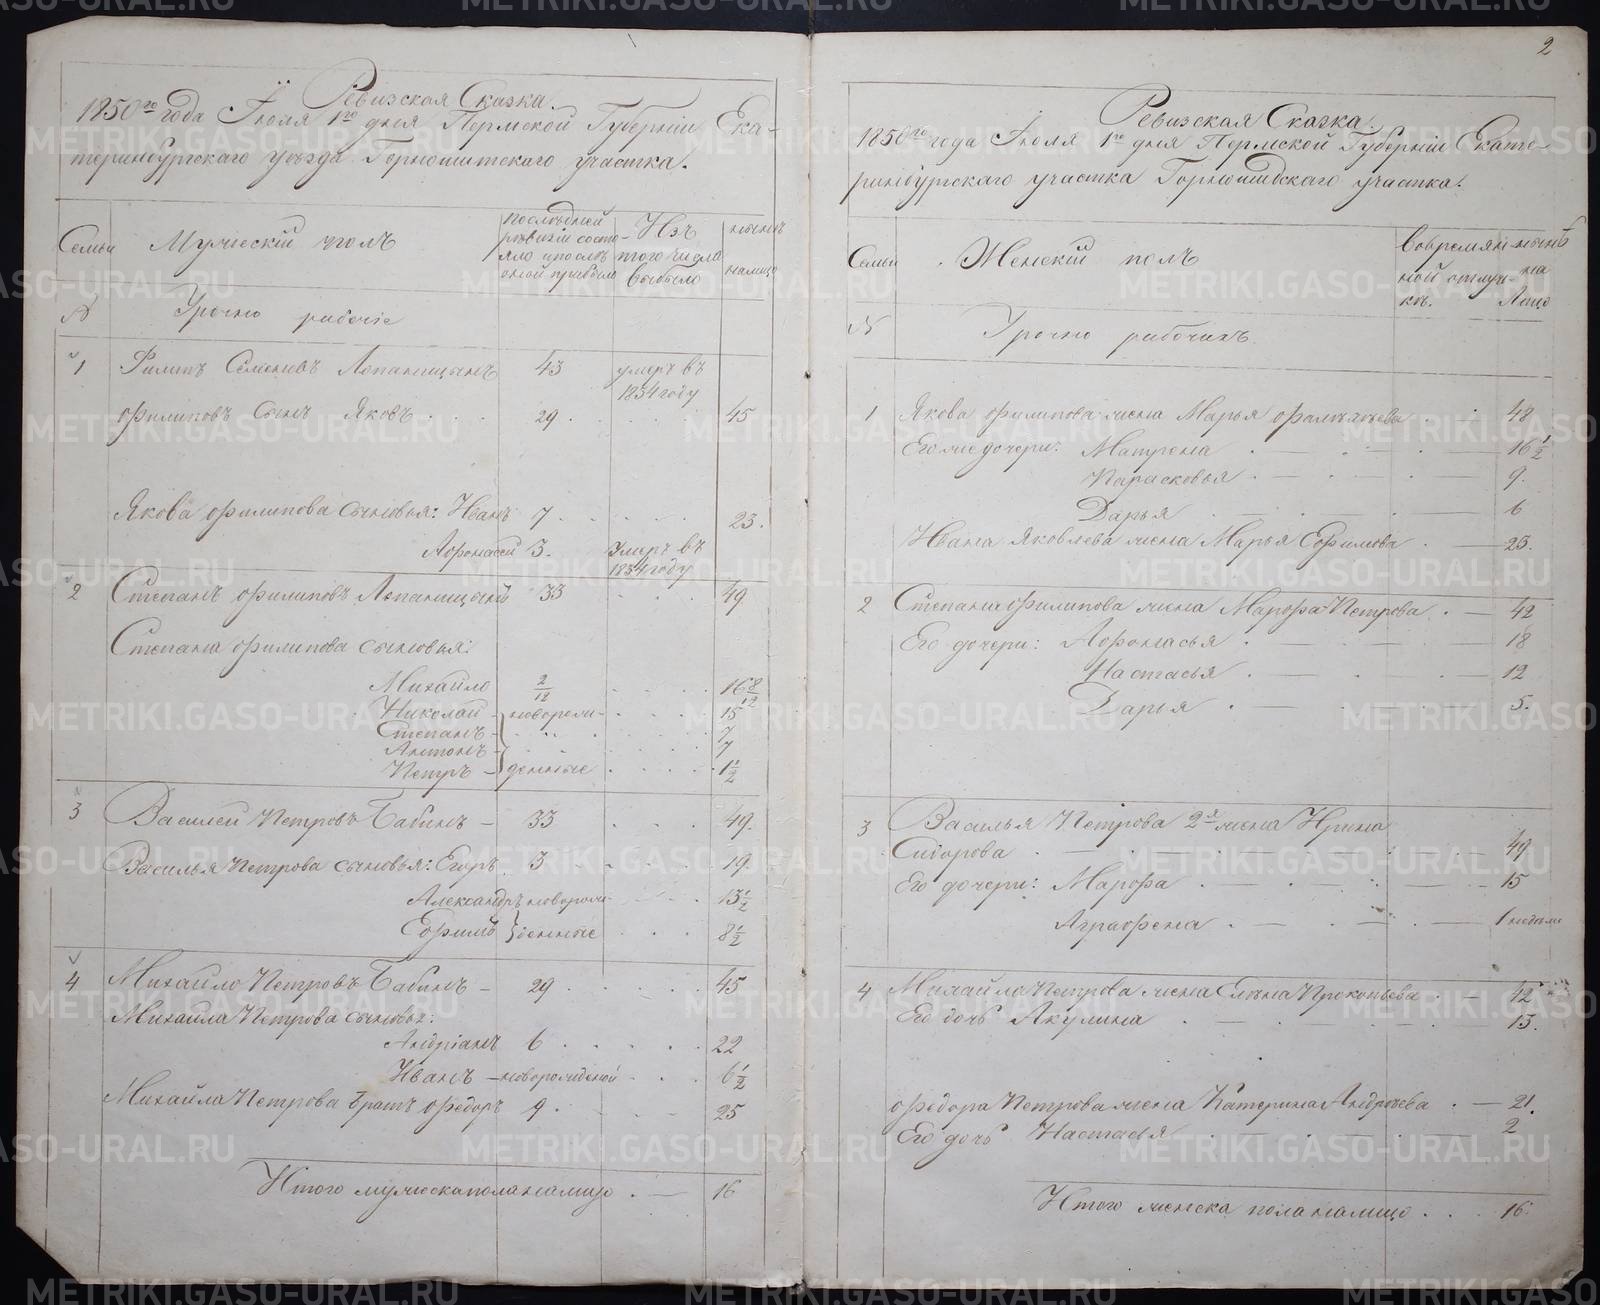 Ревизская Сказка.
1850го года Іюля 1го дня Пермской Губерніи Ека-
теринбургскаго уѣзда Горнощитскаго участка.
Семьи Мужескій полъ
Послѣдней ревизіи состояло и послѣ оной прибыло
Изъ того числа выбыло
нынѣ налицо
№ Урочно рабочіе
1 Филипъ Семеновъ Лопаницынъ 43 умеръ въ 1834 году
Филиповъ сынъ Яковъ 29 45
Якова Филипова сыновья: Иванъ 7 23.
Афонасей 3. Умеръ въ 1834 году
2 Степанъ Филиповъ Лопаницынъ 33 49
Степана Филипова сыновья:
Михайло 2/12 16 8/12
Николай новорож- 15
Степанъ 7
Антонъ 7
Петръ денные 1 1/2
3 Василей Петровъ Бабинъ 33 49.
Василья Петрова сыновья: Егоръ 3 19.
Александръ новорож- 13 1/2
Ефимъ денные 8 1/2
4 Михайло Петровъ Бабинъ 29 45
Михайла Петрова сыновья:
Андріанъ 6 22
Иванъ новорожденой 6 1/2
Михайла Петрова братъ Федоръ 9 25
Итого мужеска пола налицо 16
2
Ревизская Сказка.
1850го года Іюля 1го дня Пермской Губерніи Екате-
ринбургскаго участка Горнощидскаго участка.
Семьи Женскій полъ
Во времянной отлучкѣ.
нынѣ на лицо
№ Урочно рабочихъ
1 Якова Филипова жена Марья 48
Его же дочери: Матрена 16 1/2
Парасковья 9.
Дарья 6
Ивана Яковлева жена Марья Ефимова 23.
2 Степана Филипова жена Марфа Петрова 42
Его дочери: Афонасья 18
Настасья 12
Дарья 5.
3 Василья Петрова 2я жена Ирина
Сидорова 49
Его дочери: Марфа 15
Аграфена 1 недѣли
4 Михайла Петрова жена Елена Прокопьева 42
Его дочь Акулина 13.
Федора Петрова жена Катерина Андреева 21.
Его дочь Настасья 2
Итого женска пола налицо 16.
METRIKI.GASO-URAL.RU